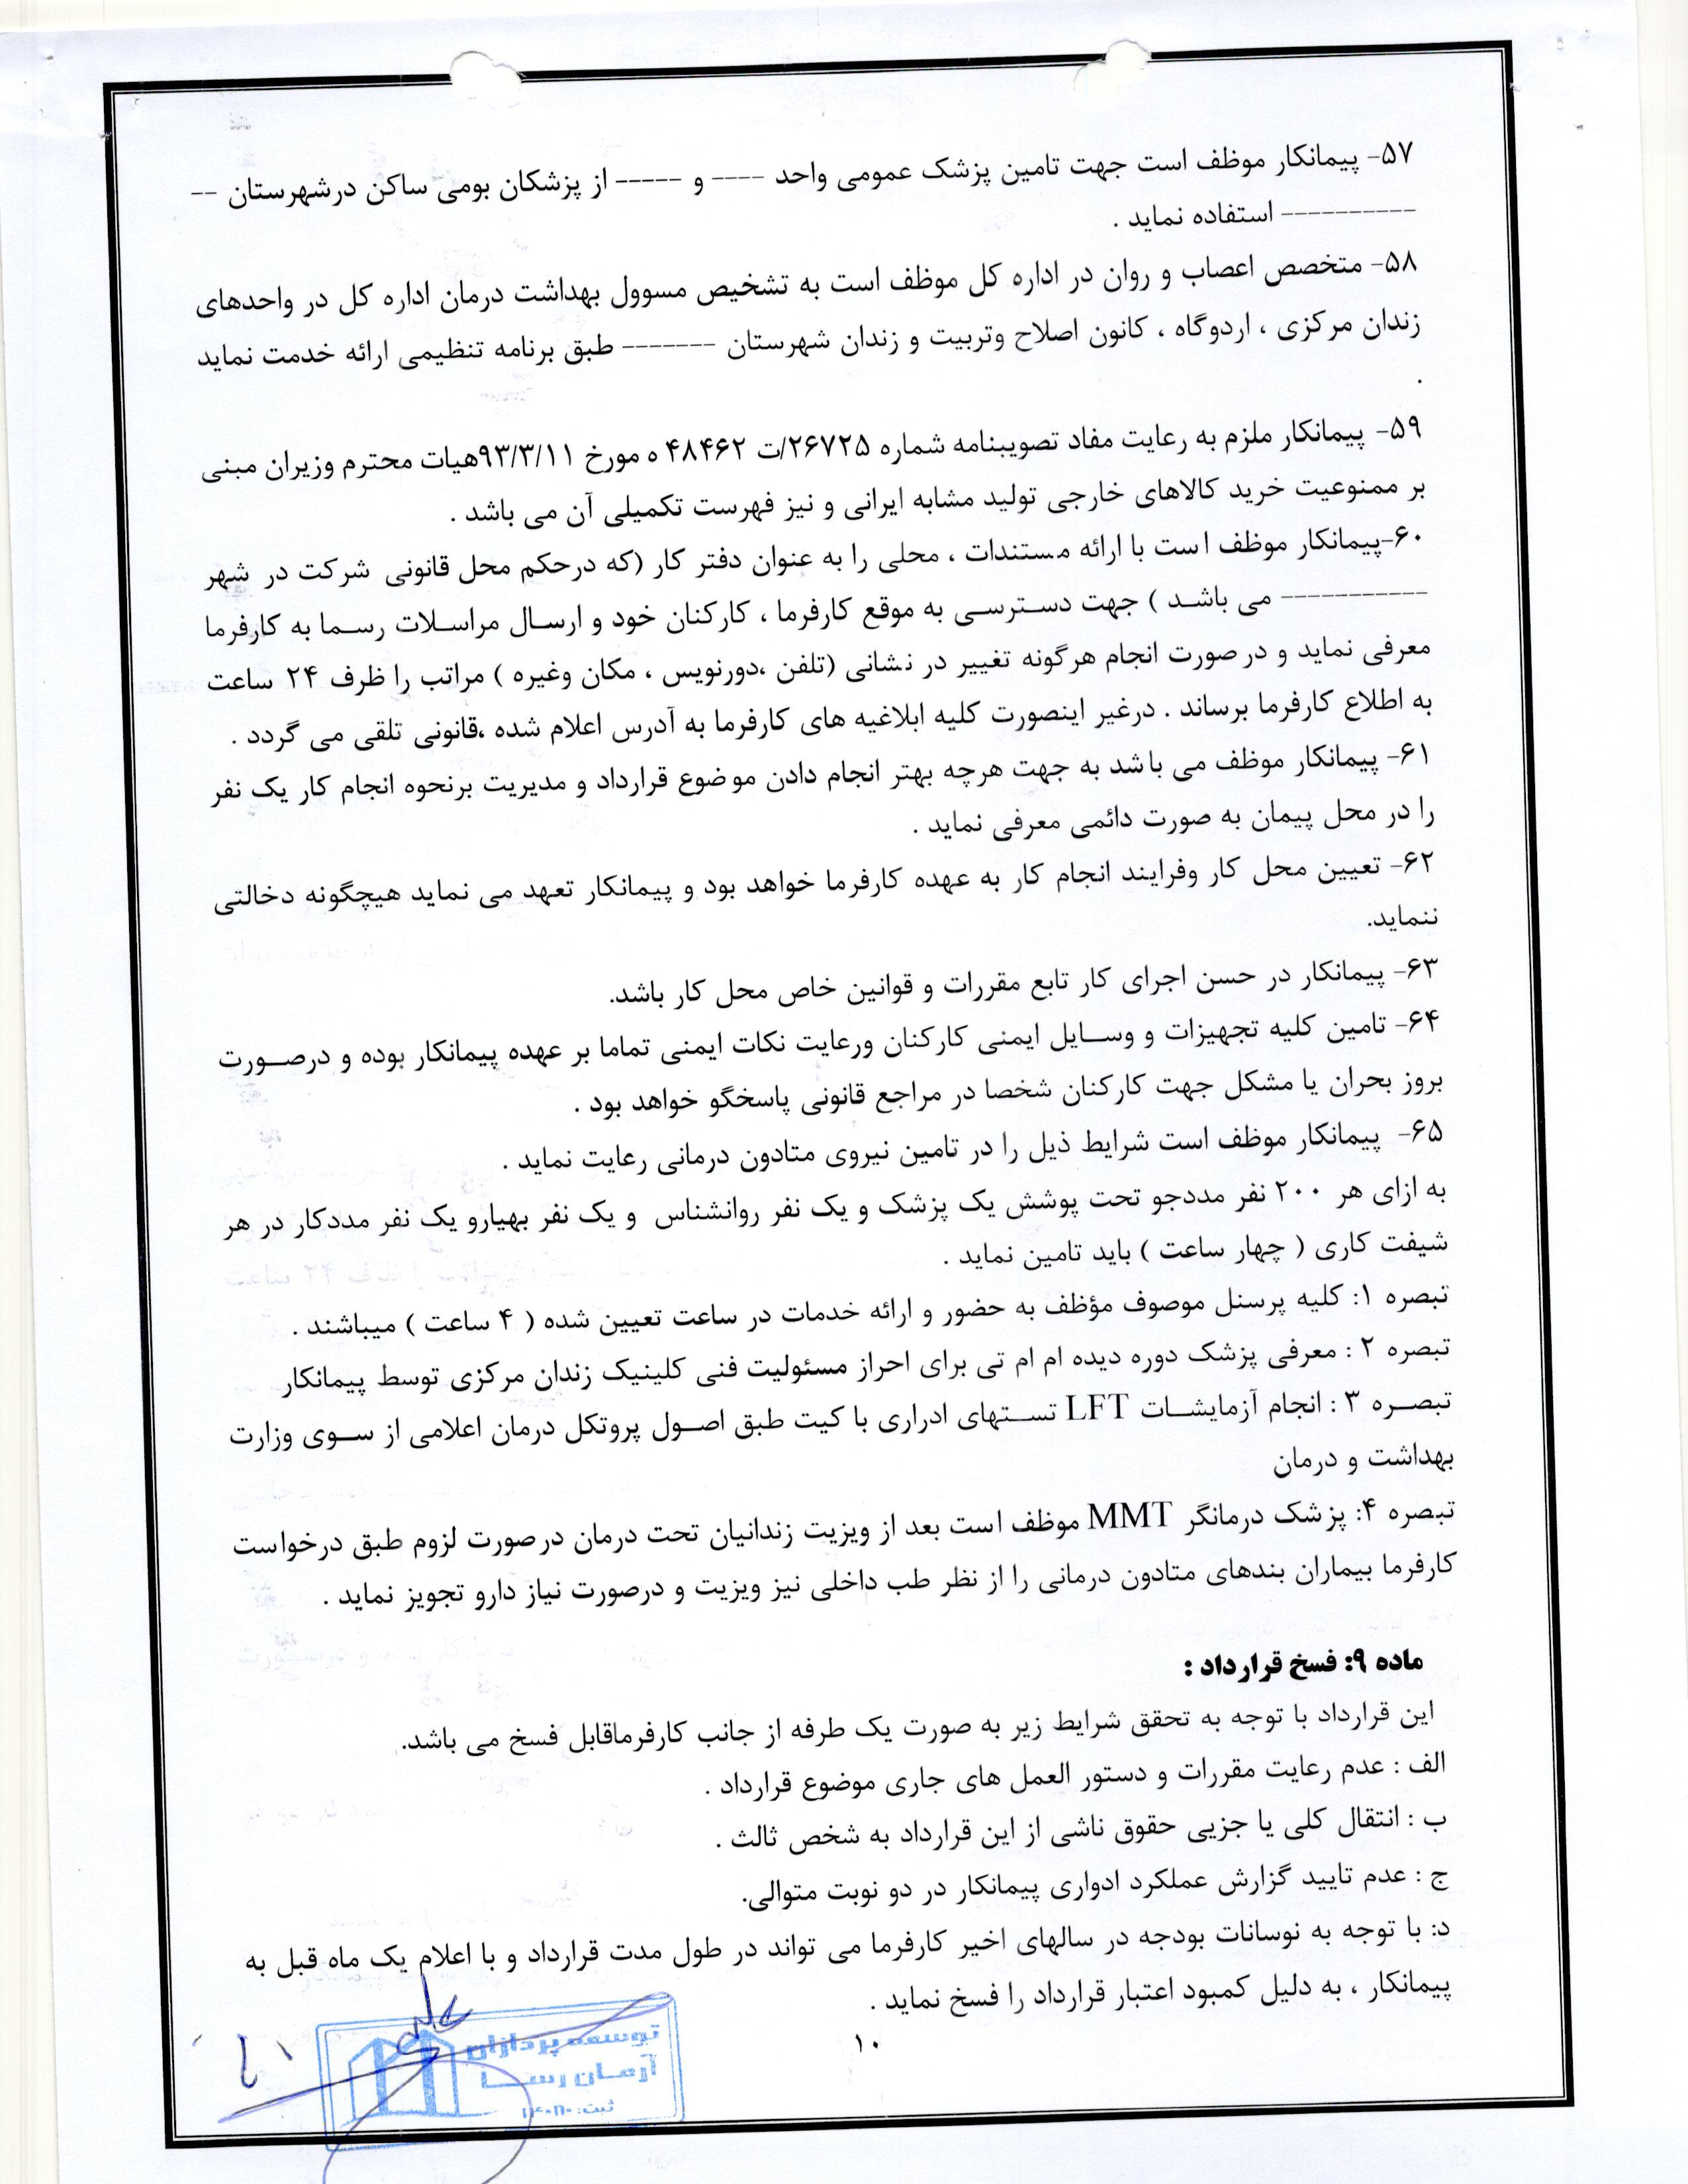 ۵۷- پیمانکار موظف است جهت تامین پزشک عمومی واحد ---- و ----- از پزشکان بومی ساکن درشهرستان --
---------- استفاده نماید .
۵۸- متخصص اعصاب و روان در اداره کل موظف است به تشخیص مسوول بهداشت درمان اداره کل در واحدهای
زندان مرکزی ، اردوگاه ، کانون اصلاح وتربیت و زندان شهرستان ------- طبق برنامه تنظیمی ارائه خدمت نماید
.
۵۹- پیمانکار ملزم به رعایت مفاد تصویبنامه شماره ۲۶۷۲۵/ت ۴۸۴۶۲ ه مورخ ۹۳/۳/۱۱هیات محترم وزیران مبنی
بر ممنوعیت خرید کالاهای خارجی تولید مشابه ایرانی و نیز فهرست تکمیلی آن می باشد .
۶۰-پیمانکار موظف است با ارائه مستندات ، محلی را به عنوان دفتر کار (که درحکم محل قانونی شرکت در شهر
----------- می باشد ) جهت دسترسی به موقع کارفرما ، کارکنان خود و ارسال مراسلات رسما به کارفرما
معرفی نماید و در صورت انجام هرگونه تغییر در نشانی (تلفن ،دورنویس ، مکان وغیره ) مراتب را ظرف ۲۴ ساعت
به اطلاع کارفرما برساند . درغیر اینصورت کلیه ابلاغیه های کارفرما به آدرس اعلام شده ،قانونی تلقی می گردد .
۶۱- پیمانکار موظف می باشد به جهت هرچه بهتر انجام دادن موضوع قرارداد و مدیریت برنحوه انجام کار یک نفر
را در محل پیمان به صورت دائمی معرفی نماید .
۶۲- تعیین محل کار وفرایند انجام کار به عهده کارفرما خواهد بود و پیمانکار تعهد می نماید هیچگونه دخالتی
ننماید.
۶۳- پیمانکار در حسن اجرای کار تابع مقررات و قوانین خاص محل کار باشد.
۶۴- تامین کلیه تجهیزات و وسایل ایمنی کارکنان ورعایت نکات ایمنی تماما بر عهده پیمانکار بوده و درصورت
بروز بحران یا مشکل جهت کارکنان شخصا در مراجع قانونی پاسخگو خواهد بود .
۶۵- پیمانکار موظف است شرایط ذیل را در تامین نیروی متادون درمانی رعایت نماید .
به ازای هر ۲۰۰ نفر مددجو تحت پوشش یک پزشک و یک نفر روانشناس و یک نفر بهیارو یک نفر مددکار در هر
شیفت کاری ( چهار ساعت ) باید تامین نماید .
تبصره ۱: کلیه پرسنل موصوف مؤظف به حضور و ارائه خدمات در ساعت تعیین شده ( ۴ ساعت ) میباشند .
تبصره ۲ : معرفی پزشک دوره دیده ام ام تی برای احراز مسئولیت فنی کلینیک زندان مرکزی توسط پیمانکار
تبصره ۳ : انجام آزمایشات LFT تستهای ادراری با کیت طبق اصول پروتکل درمان اعلامی از سوی وزارت
بهداشت و درمان
تبصره ۴: پزشک درمانگر MMT موظف است بعد از ویزیت زندانیان تحت درمان درصورت لزوم طبق درخواست
کارفرما بیماران بندهای متادون درمانی را از نظر طب داخلی نیز ویزیت و درصورت نیاز دارو تجویز نماید .
ماده ۹: فسخ قرارداد :
این قرارداد با توجه به تحقق شرایط زیر به صورت یک طرفه از جانب کارفرماقابل فسخ می باشد.
الف : عدم رعایت مقررات و دستور العمل های جاری موضوع قرارداد .
ب : انتقال کلی یا جزیی حقوق ناشی از این قرارداد به شخص ثالث .
ج : عدم تایید گزارش عملکرد ادواری پیمانکار در دو نوبت متوالی.
د: با توجه به نوسانات بودجه در سالهای اخیر کارفرما می تواند در طول مدت قرارداد و با اعلام یک ماه قبل به
پیمانکار ، به دلیل کمبود اعتبار قرارداد را فسخ نماید .
۱۰
توسعه پردازان
آرمان رسا
ثبت: